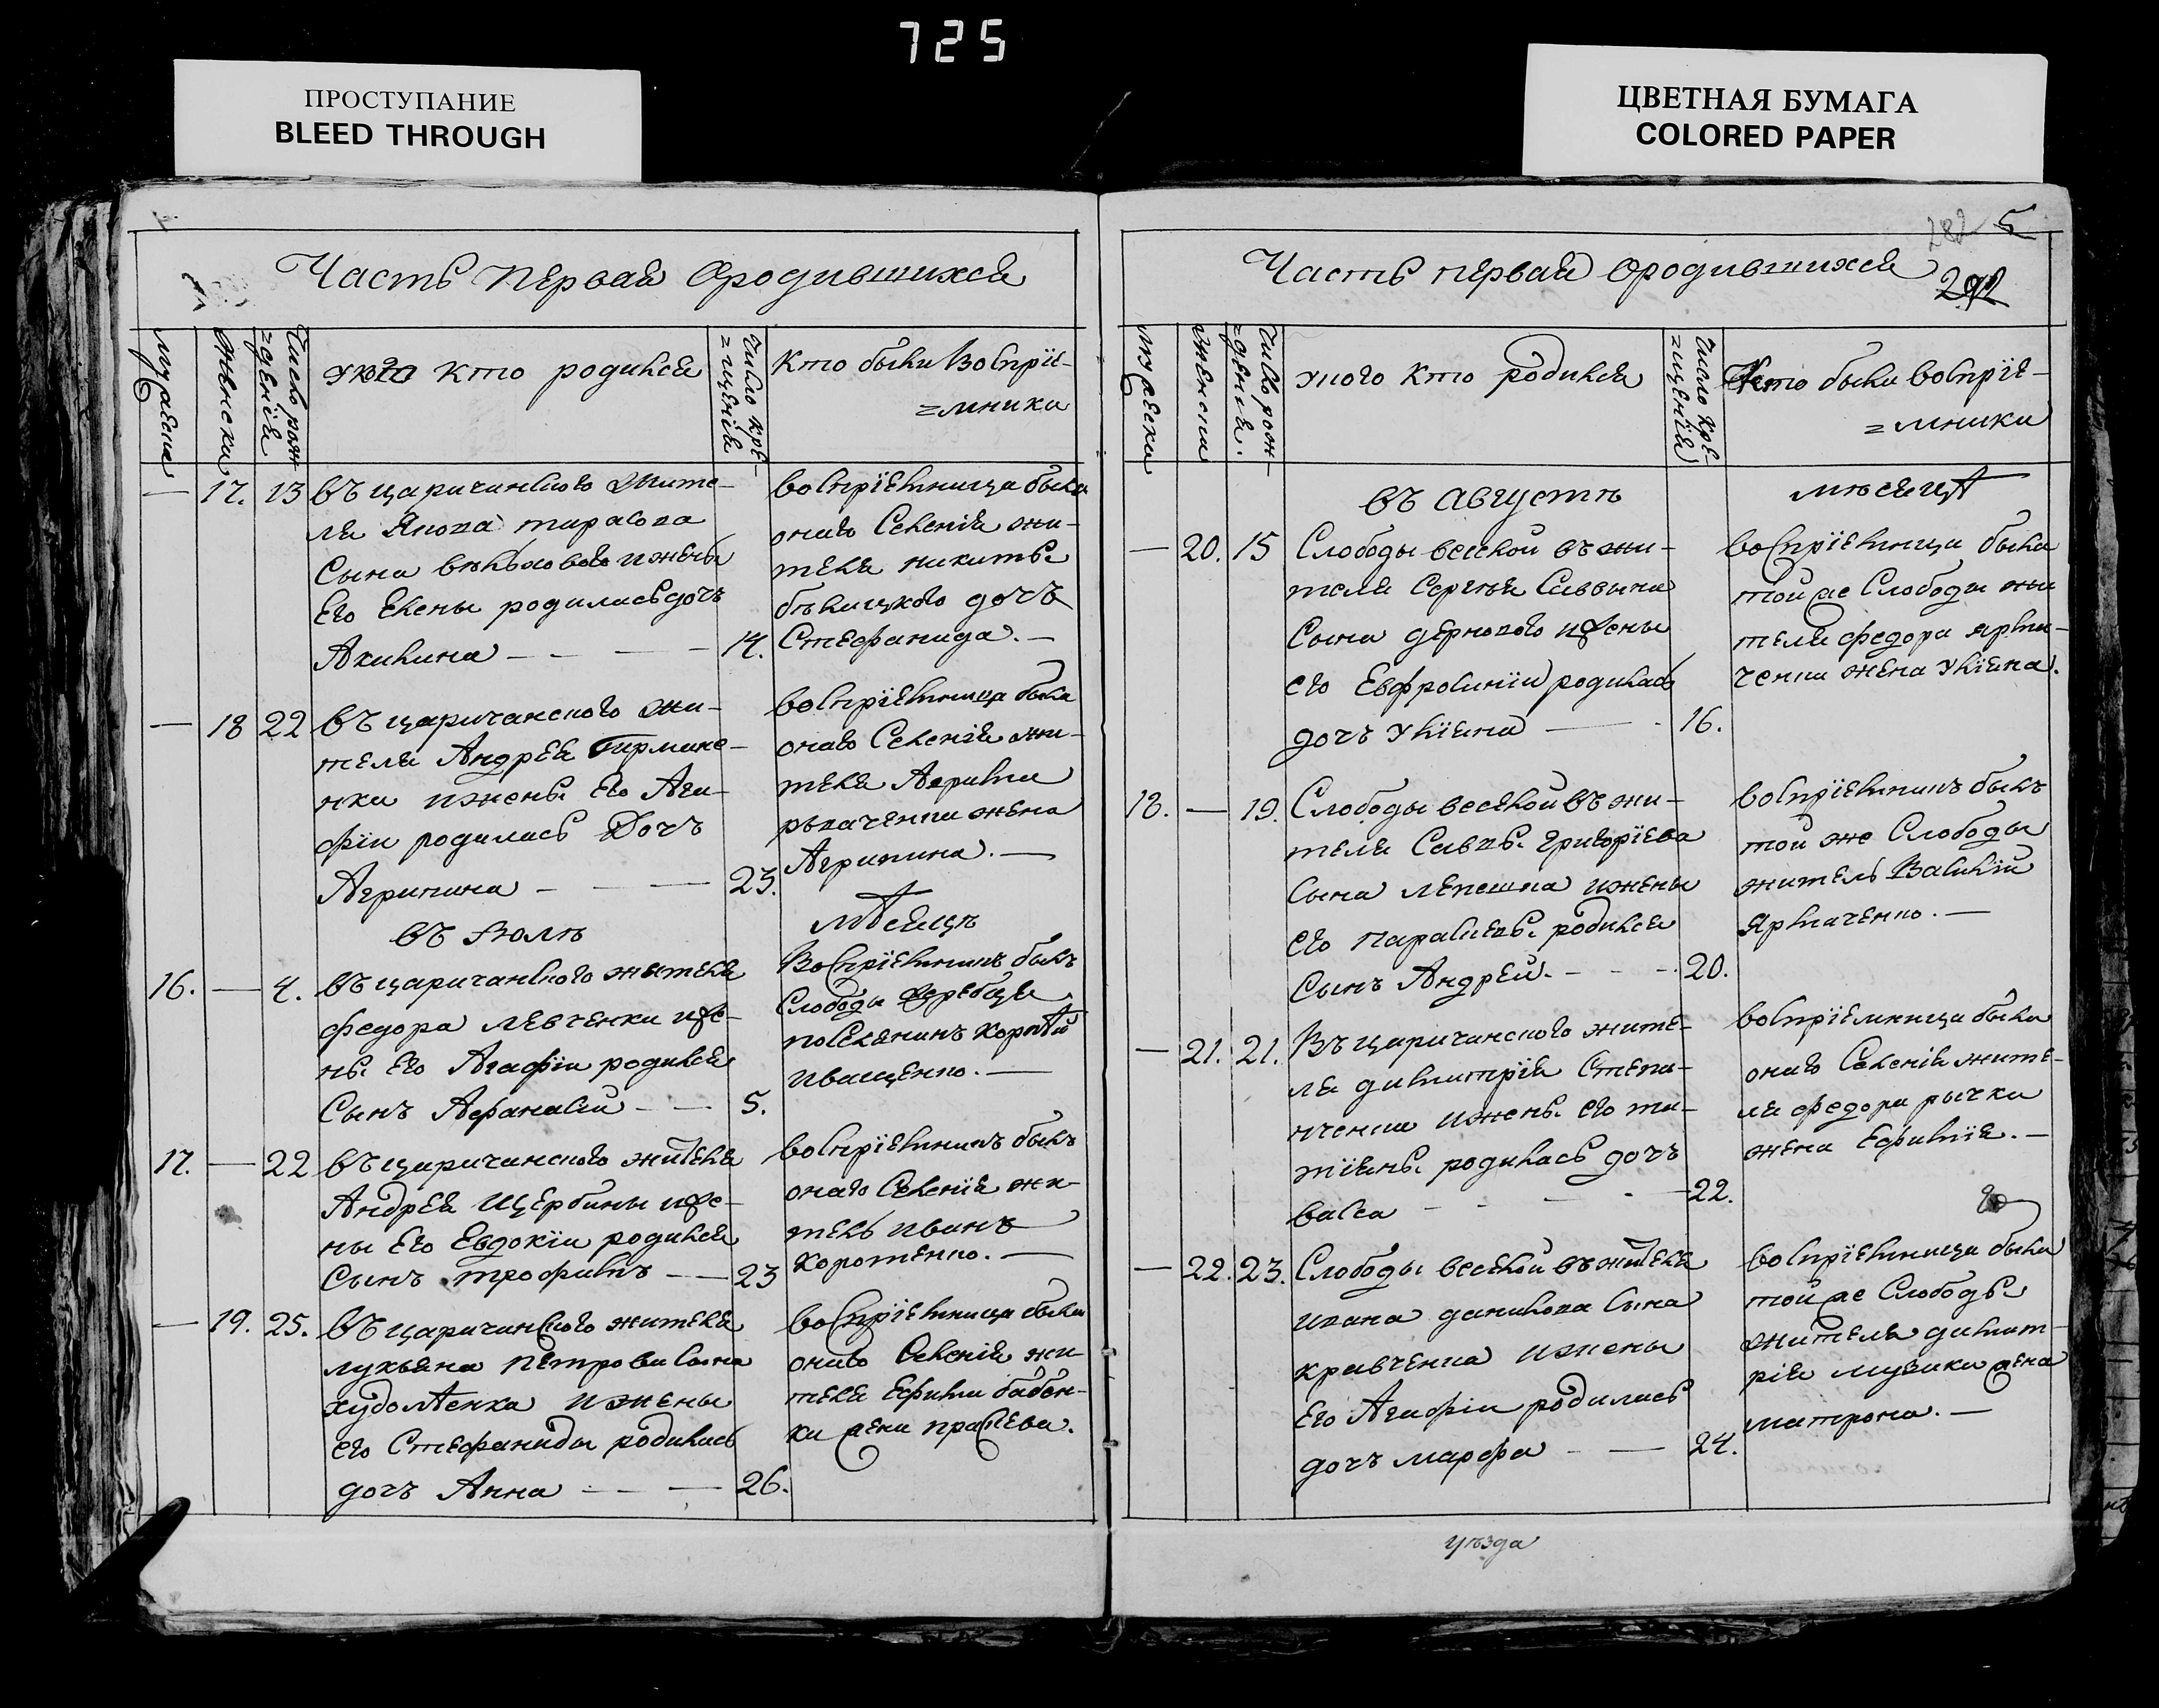 725
ПРОСТУПАНИЕ
BLEED THROUGH
ЦВЕТНАЯ БУМАГА
COLORED PAPER
Часть первая ородившихся
мужеска
женска
Число рож-
=денія
кто родился
Число кре-
=щенія
Кто были Воспріе-
=мники
— 17. 13 въ царичанского жите-
ля тарасова
Сына ижены
Его Елены родилась дочъ
Акилина — 14.
воспріемница была
онаго Селенія жи-
теля никиты
бѣлицкого дочъ
Стефанида. —
— 18 22 въ царичанского жи-
теля Андрея
нки ижены Его Ага-
фіи родилась Дочъ
Агрипина — 23.
воспріемница была
онаго Селенія жи-
теля
ткаченка жена
Агрипина. —
въ Іюлѣ мѣсяцѣ
16. — 4. въ царичанского жителя
федора левченки иже-
ны Его Агафіи родился
Сынъ Афанасій — 5.
Воспріемникъ былъ
Слободы
поселянинъ
иващенко. —
17. — 22 въ царичанского жителя
Андрея Щербины иже-
ны Его Евдокіи родился
Сынъ трофимъ — 23
воспріемникъ былъ
онаго Селенія жи-
тель иванъ
коротенко. —
— 19. 25. въ царичанского жителя
лукьяна петрова Сына
ижены
его Стефаниды родилась
дочъ Анна — 26.
воспріемница была
онаго Селенія жи-
теля Ефима бабен-
ки жена
5
282
292
Часть первая ородившихся
мужеска
женска
Число рож-
=денія.
укого кто родился
Число кре-
=щенія
Кто были воспріе-
=мники
въ августѣ мѣсяцѣ
— 20. 15 Слободы жи-
теля Сергѣя Саввина
Сына дернового ижены
его Евфросиніи родилась
дочъ Уліяна — 16.
воспріемница была
тойже Слободы жи
теля федора ярма-
ченки жена Уліяна.
18. — 19. Слободы жи-
теля Саввы григорієва
Сына лепешка ижены
его параскевы родился
Сынъ Андрей. - - - 20.
воспріемникъ былъ
той же Слободы
житель Василій
Ярмаченко. —
— 21. 21. Въ царичанского жите-
ля димитрія Степа-
нченка ижены его та-
тіяны родилась дочъ
васса - - - 22.
воспріемница была
онаго Селенія жите-
ля федора рычка
жена Ефимія. —
— 22. 23. Слободы жителя
ивана данилова Сына
кравченка ижены
Его Агафіи родилась
дочъ марфа - — 24.
воспріемница была
тойже Слободы
жителя димит-
рія музыки жена
матрона. —
уѣзда